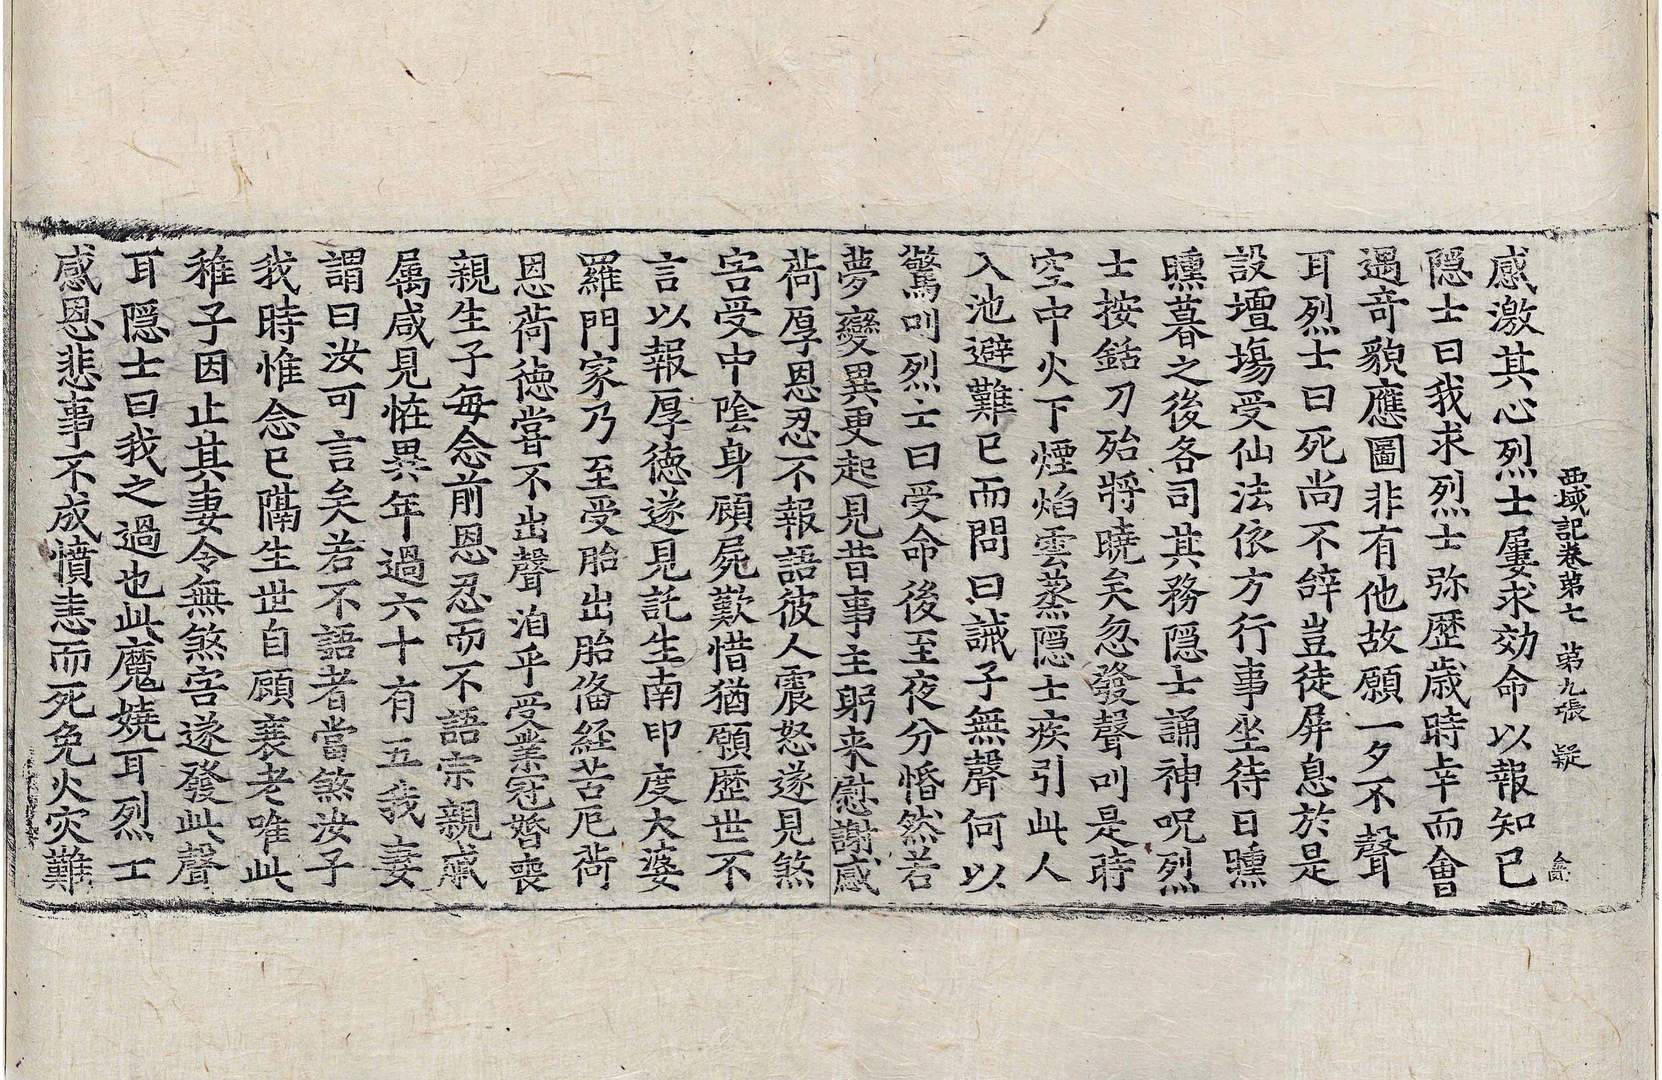 西域記卷第七 第九張 疑
感激其心烈士屢求効命以報知已
隱士曰我求烈士弥歷歲時幸而會
遇竒貌應圖非有他故願一夕不聲
耳烈士曰死尚不辭豈徒屏息於是
設壇塲受仙法依方行事坐待日曛
曛暮之後各司其務隱士誦神呪烈
士按銛刀殆將曉矣忽發聲叫是時
空中火下煙焰雲蒸隱士疾引此人
入池避難已而問曰誡子無聲何以
驚叫烈士曰受命後至夜分惛然若
夢變異更起見昔事主躬来慰謝感
荷厚恩忍不報語彼人震怒遂見煞
害受中陰身顧屍歎惜猶願歷世不
言以報厚德遂見託生南印度大婆
羅門家乃至受胎出胎俻經苦厄荷
恩荷德嘗不出聲洎乎受業冠婚喪
親生子每念前恩忍而不語宗親戚
属咸見恠異年過六十有五我妻
謂曰汝可言矣若不語者當煞汝子
我時惟念已隔生世自顧衰老唯此
稚子因止其妻令無煞害遂發此聲
耳隱士曰我之過也此魔嬈耳烈士
感恩悲事不成憤恚而死免火灾難